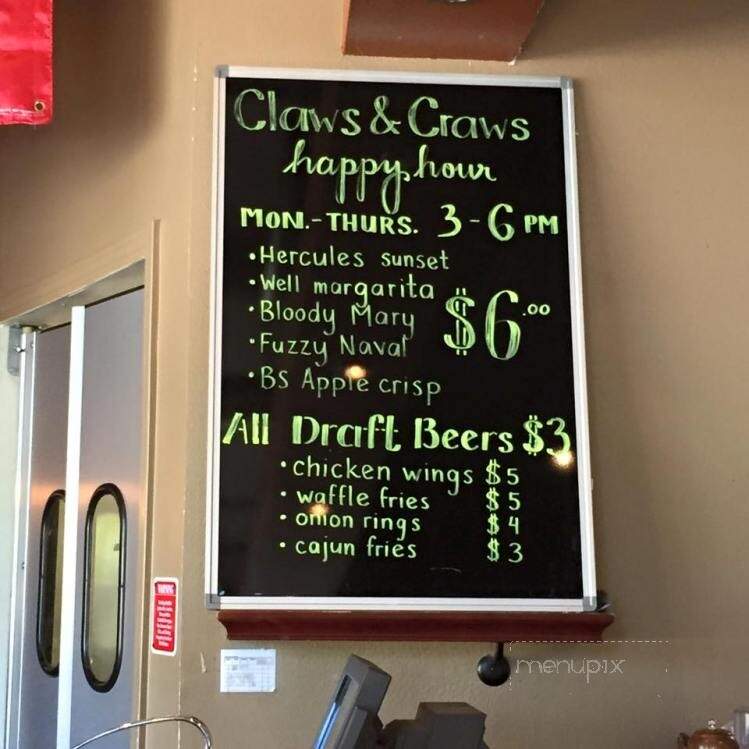 Claws & Craws
happy hour
MON.-THURS. 3-6 PM
•Hercules sunset
•Well margarita
•Bloody Mary
•Fuzzy Naval
•BS Apple crisp
$6.00
All Draft Beers $3
•chicken wings $5
•waffle fries $5
•onion rings $4
•cajun fries $3
WARNING
menupix